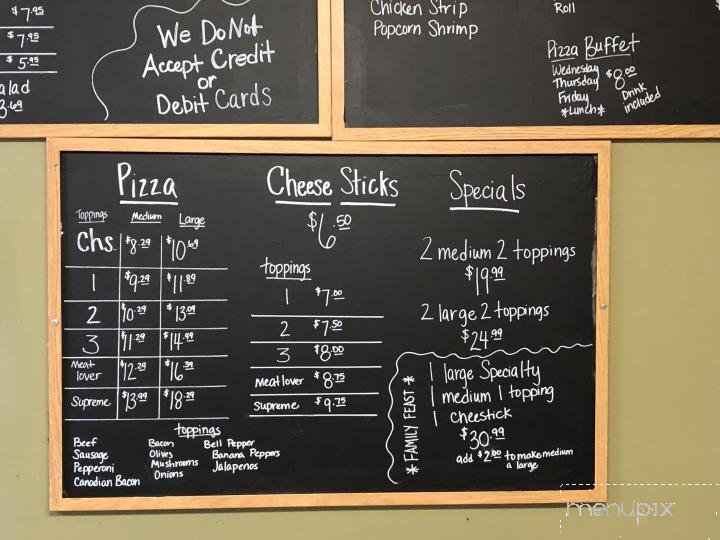 $7.95
$7.95
$5.95
We Do Not
Accept Credit
or
Debit Cards
Chicken Strip
Popcorn Shrimp
Roll
Pizza Buffet
Wednesday
Thursday
Friday
*Lunch*
$8.00
Drink
included
Pizza
Toppings Medium Large
Chs. $8.29 $10.69
1 $9.29 $11.89
2 $10.29 $13.09
3 $11.29 $14.49
Meat lover $12.29 $16.39
Supreme $13.99 $18.29
toppings
Beef Bacon Bell Pepper
Sausage Olives Banana Peppers
Pepperoni Mushrooms Jalapenos
Canadian Bacon Onions
Cheese Sticks
$6.50
toppings
1 $7.00
2 $7.50
3 $8.00
Meat lover $8.75
Supreme $9.75
Specials
2 medium 2 toppings
$19.99
2 large 2 toppings
$24.99
*FAMILY FEAST*
1 large Specialty
1 medium 1 topping
1 cheestick
$30.99
add $2.00 to make medium
a large
menupix